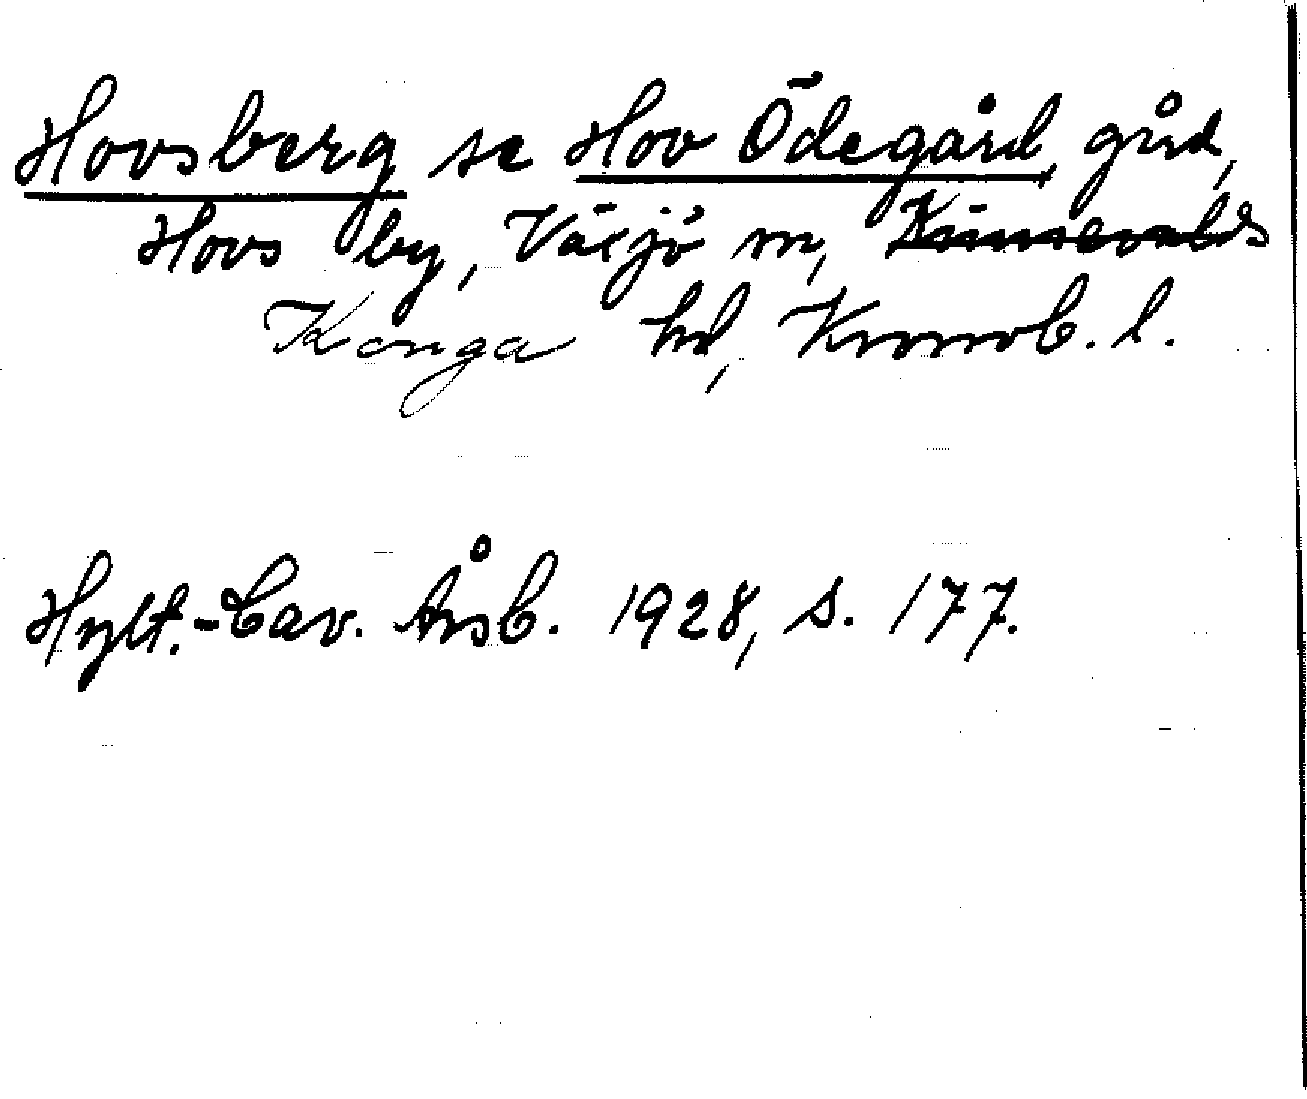 Hovsberg se Hov Ödegård, gård,
Hovs by, Växjö sn, Kinnevalds
Konga hd, Kronob. l.
Hylt.-Cav. Årsb. 1928, s. 177.